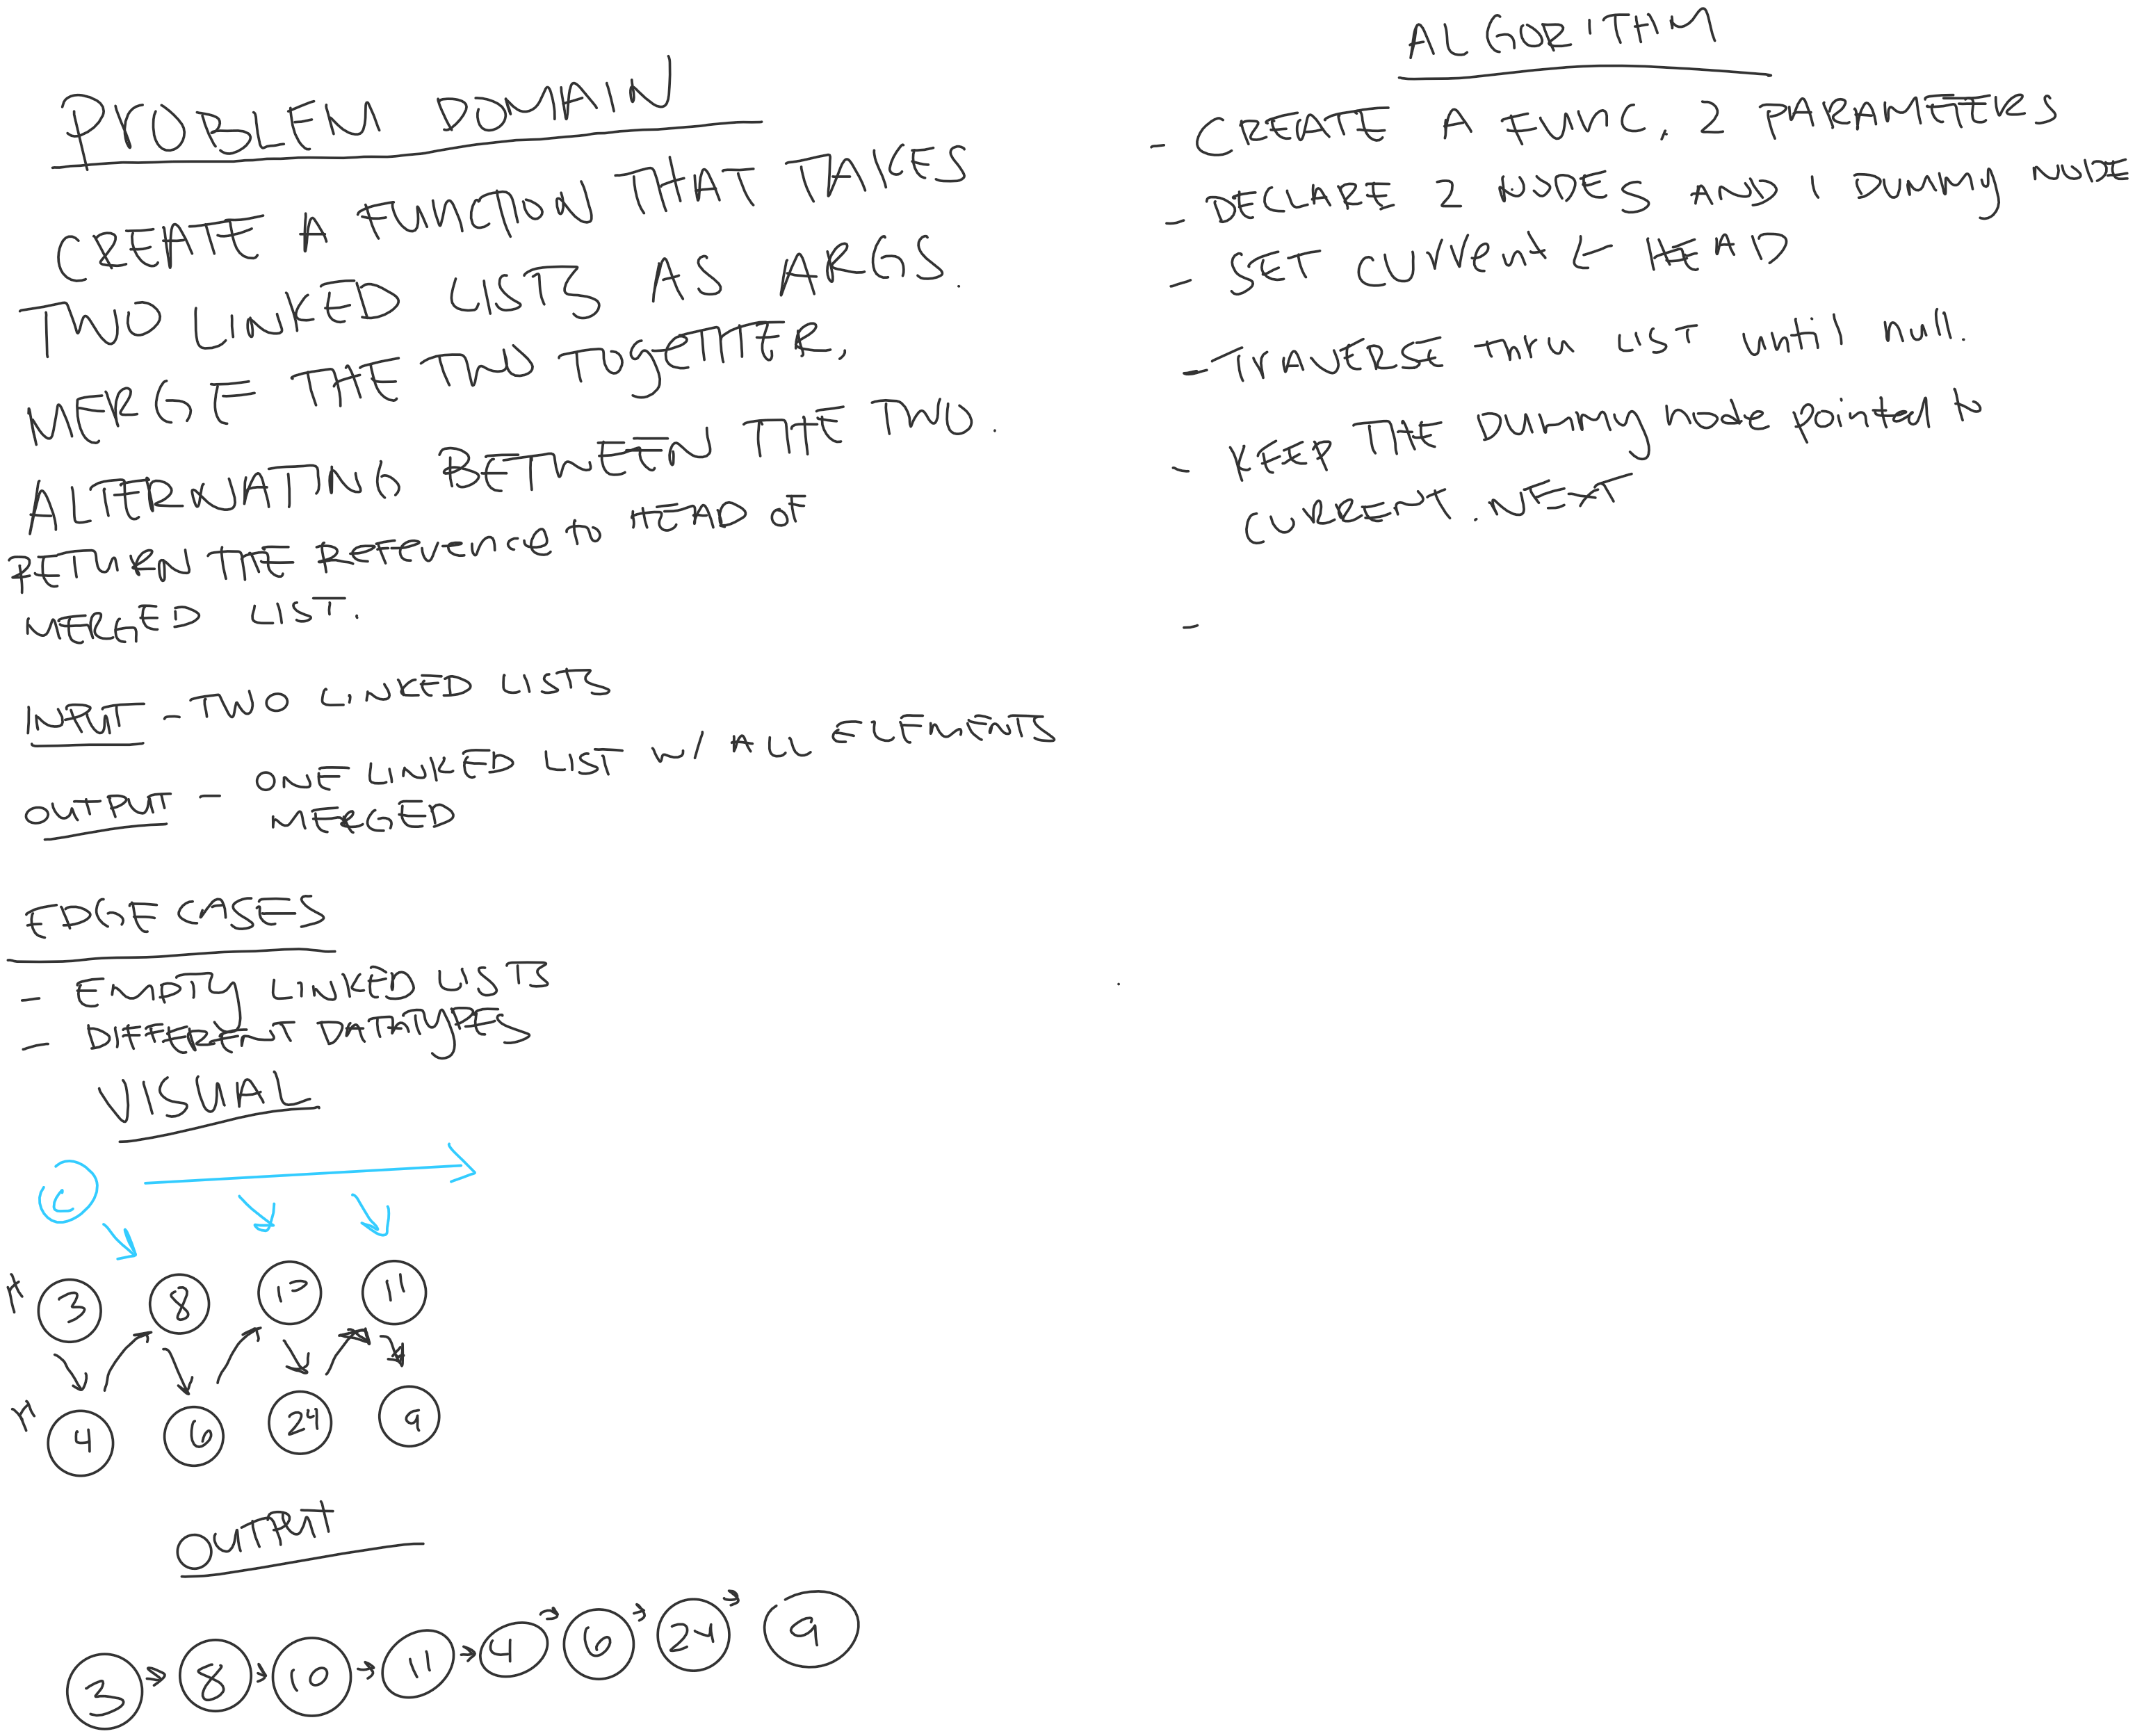 PROBLEM DOMAIN
CREATE A FUNCTION THAT TAKES
TWO LINKED LISTS AS ARGS.
MERGE THE TWO TOGETHER,
ALTERNATING BETWEEN THE TWO.
RETURN THE REFERENCE to HEAD OF
MERGED LIST.
INPUT - TWO LINKED LISTS
OUTPUT - ONE LINKED LIST W/ ALL ELEMENTS
MERGED
EDGE CASES
- EMPTY LINKED LISTS
- DIFFERENT DATATYPES
VISUAL
C
3 8 10 11
4 6 24 9
OUTPUT
3 8 10 11 4 6 24 9
ALGORITHM
- CREATE A FUNC. 2 PARAMETERS
- DECLARE 2 NODES AND 1 DUMMY NODE
- SET CURRENT ← HEAD
- TRAVERSE THRU LIST until null.
- KEEP THE DUMMY node pointed to
CURRENT.NEXT
-